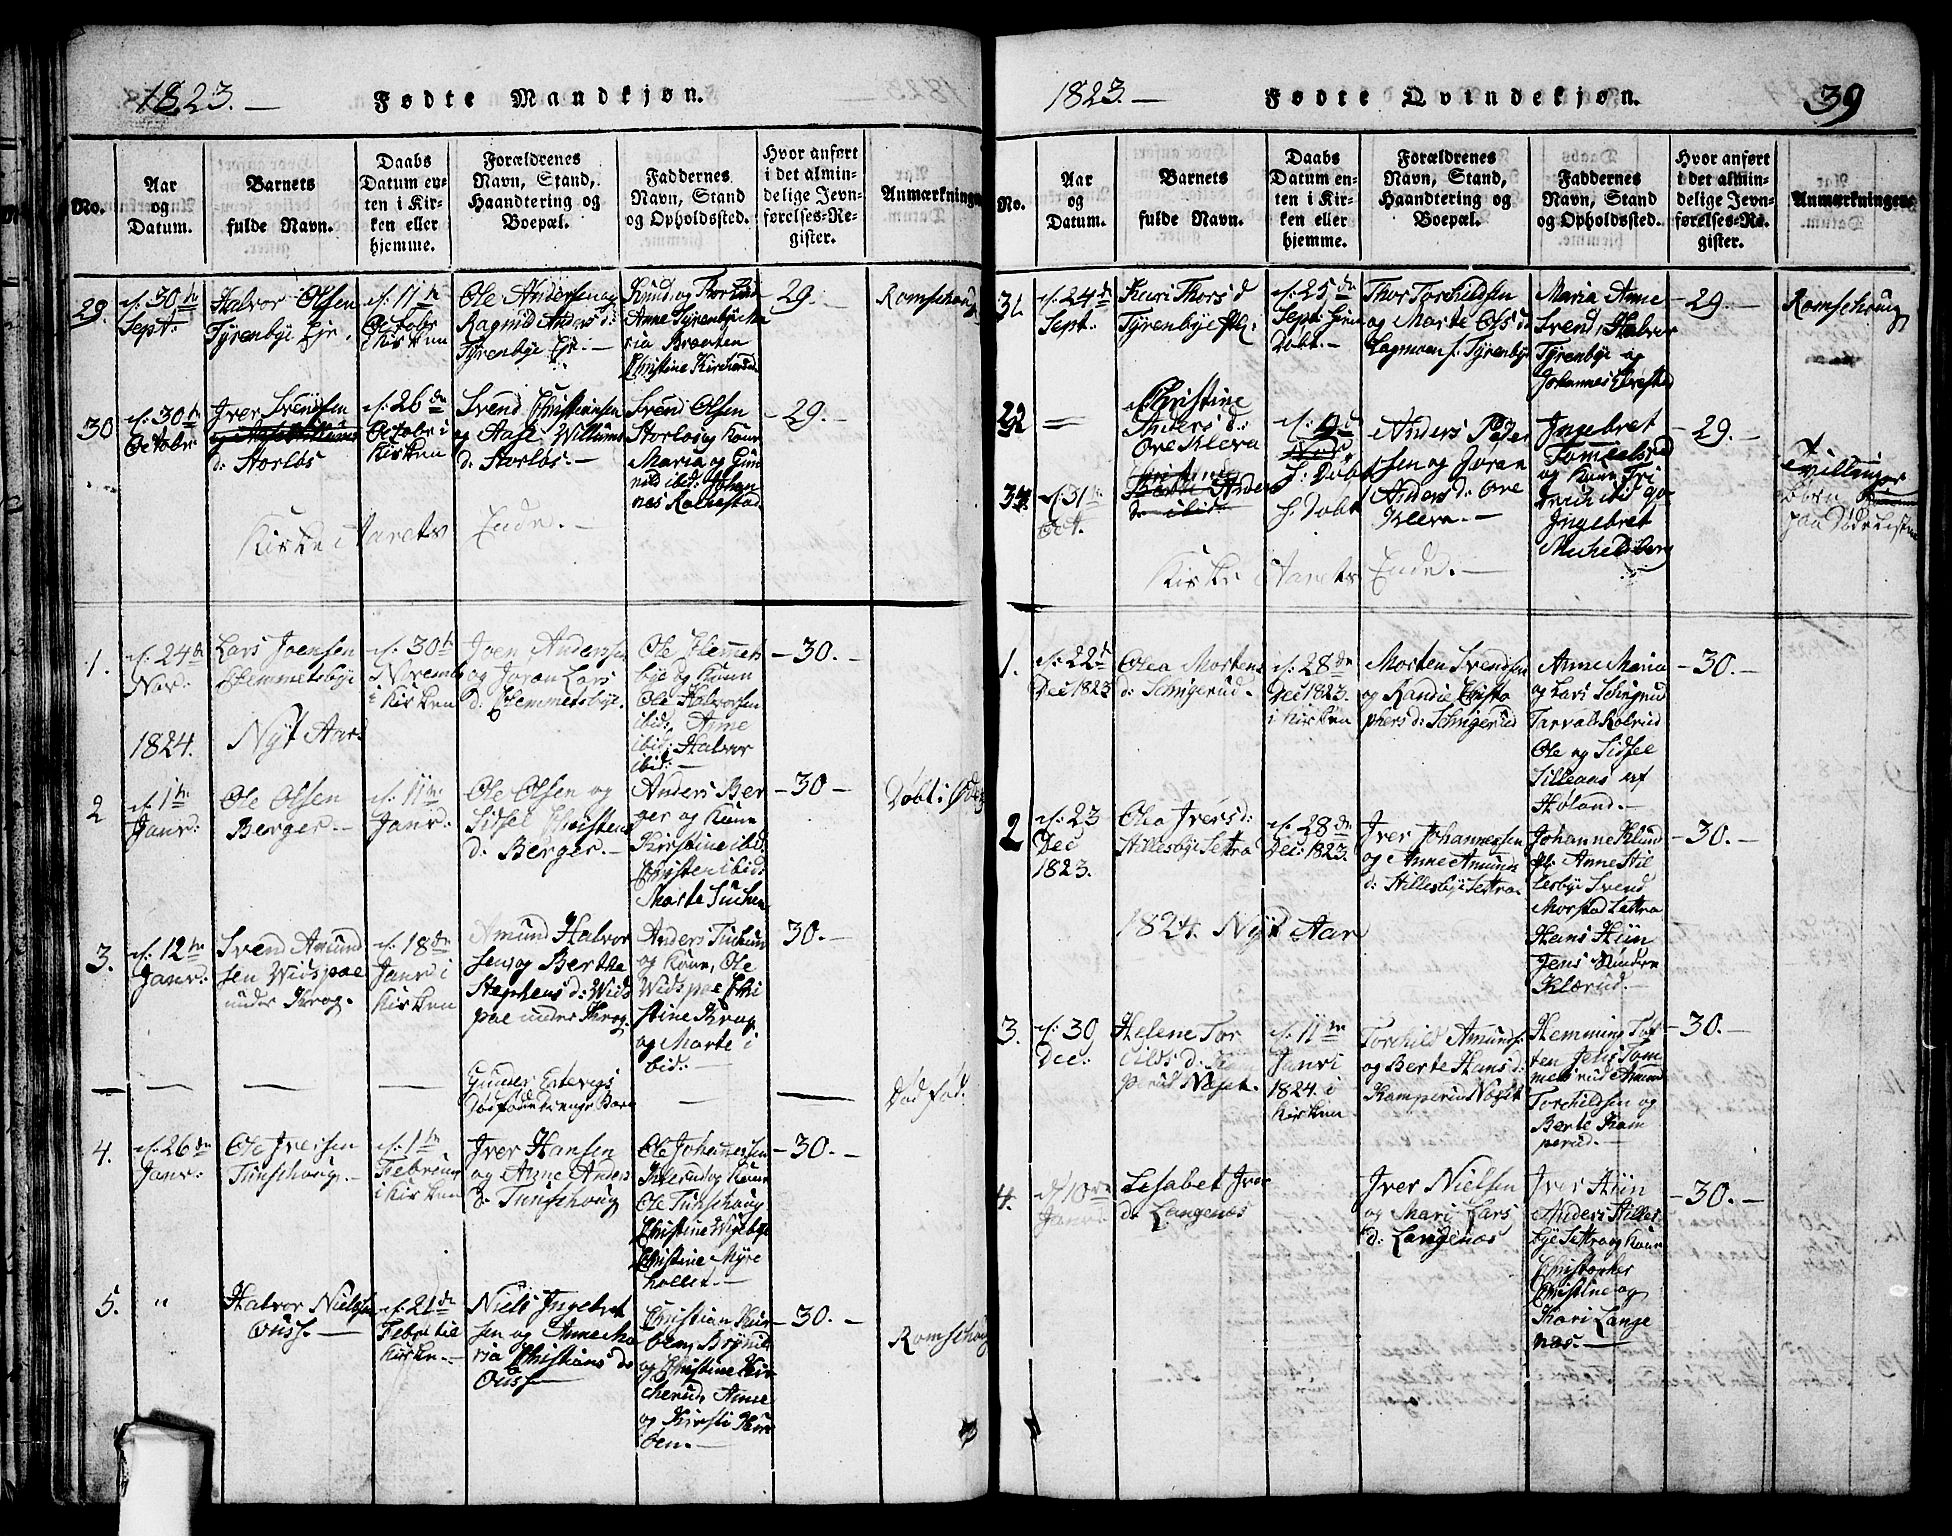 1823. —
Fødte Mandkjøn.
No.
Aar
og
Datum.
Barnets
fulde Navn.
Daabs
Datum en-
ten i Kir-
ken eller
hjemme.
Forældrenes
Navn, Stand,
Haandtering og
Boepæl.
Faddernes
Navn, Stand
og Opholdssted.
Hvor anført
i det almin-
delige Jevn-
førelses-Re-
gister.
Anmærkninge
29.
d: 30te
Sept:
Halvor Olsen
Tyrenbye Eje.
d: 11te
Octobr
i Kirken
Ole Andersen og
Ragnild Anders d:
Tyrenbye Eje. —
Knud og
Anne Tyrenbye Ma
ria Braaten
Christine Kircherud
29. —
Romschoug
30
d: 30te
Octobr
Iver Svendsen
Storløs
d: 26de
Octobr i
Kirken
Svend Christiansen
og Aase Willums
d: Storløs. —
Svend Olsen
Storløs og Kone
Maria og Gun
nild ibid: Johan
nes Rakkestad
29. —
Kirke Aarets Ende. —
1.
d: 24de
Nov:
Lars Joensen
Hemmetsbye
d: 30te
Novemb
i Kirken
Joen Andersen
og Joran Lars
d: Hemmetsbye.
Ole Hemmets
bye og Kone
Ole Halvorsen
ibid: Anne
ibid: Halvor
ibid: —
30. —
1824. Nyt Aar.
2
d: 1te
Janr:
Ole Olsen
Berger. —
d: 11te
Janr:
Ole Olsen og
Sidsel Christens
d: Berger. —
Anders Ber
ger og Kone
Kristine ibid.
Christen ibid:
Marte Tuchen
30 —
Døbt i
3.
d: 12te
Janr:
Svend Amund
sen Widspae
under Krog.
d: 18de
Janr i
Kirken
Amund Halvor
sen og Berthe
Stephens d: Wids
pae under Krog.
Anders Tuchen
og Kone, Ole
Widspae Chri
stine Krog
og Marte i
bid: —
30. —
Gunder
Dødfødde Drenge Barn
Død fød.
4.
d: 26de
Janr:
Ole Iversen
Tunschoug. —
d: 1te
Februar
i Kirken
Iver Hansen
og Anne Anders
d: Tunschoug
Ole Johannessen
og Kone
Ole Tunschoug
Christine Wisebye
Christine Myre
30. —
5.
"
Halvor Nielsen
Ouss. —
d: 21de
Febr til
Kirke. —
Niels Ingebret
sen og Anne Ma
ria Christians d:
Ouss —
Christian Kur
og Christine Kir
cherud, Anne
og Kirsti Kur
øen. —
30. —
Romschoug
1823. —
Fødte Qvindekjøn.
39
No.
Aar
og
Datum.
Barnets
fulde Navn.
Daabs
Datum en-
ten i Kir-
ken eller
hjemme.
Forældrenes
Navn, Stand,
Haandtering og
Boepæl.
Faddernes
Navn, Stand
og Opholdssted.
Hvor anført
i det almin-
delige Jevn-
førelses-Re-
gister.
Anmærkninger
31
d: 24de
Sept:
Kari Thors d
Tyrenbye
d: 25de
Sept:
Døbt. —
Thor Torchildsen
og Marte Ols d:
Tyrenbye
Maria Anne
Svend, Halvor
Tyrenbye og
Johannes
29. —
Romschoug
32
Christine
Anders d:
Øvre Kleva
d: 9de
Nov:
H: Døbt
Anders Peder
sen og Joran
Anders d: Øvre
Kleva. —
Ingebret
Tomelsrud
og Kone
Ingebret
Michelsberg
29. —
Tvillinger
Børn
paa Døde Listen
33
d: 31te
Oct.
H: Døbt
Kirke Aarets Ende. —
1.
d: 22de
Dec 1823
Olea Mortens
d: Schigerud. —
d: 28de
Dec 1823.
i Kirken
Morten Svendsen
og Randie Christo
phers d: Schigerud
Anne Maria
og Lars Schigerud
Tarvald Kolerud
Ole og Sidsel
af
Høland. —
30. —
2
d: 23
Dec
1823.
Olea Ivers d:
Stillesbye Settra
d: 28de
Dec: 1823.
Iver Johannessen
og Anne Amunds
d: Stillesbye Settra.
Johanne Klund
Anne Stil
lesbye Svend
Morstad Settra
Hans Hiin
Jens
Klærud. —
30. —
1824. Nyt Aar
3.
d: 30
Dec:
Helene Tor
childs d: Kam
perud
d: 11te
Janr i
1824. i
Kirken
Torchild Amunds:
og Berte Hans d:
Kamperud
Hemming Tof
ten Jens Tom
mels rud Amund
Torchildsen og
Berte Kam
perud. —
30. —
4.
d: 10de
Janr:
Lisabet Iver
d: Langenæs
Iver Nielsen
og Mari Lars
d: Langenæs
Iver Hiin
Anders Stilles
bye Settra og Kone
Christopher
Christine og
Kari Lange
næs. —
30. —